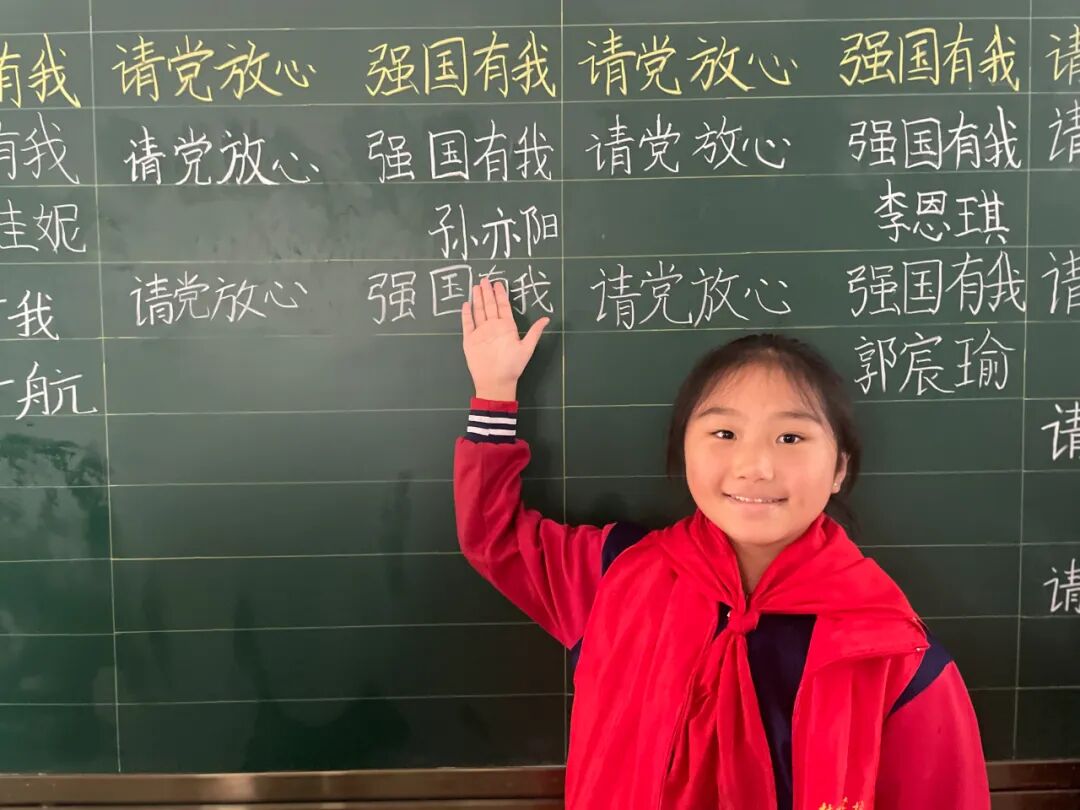 有我 请党放心 强国有我 请党放心 强国有我 请
有我 请党放心 强国有我 请党放心 强国有我 请
佳妮 孙亦阳 李恩琪
我 请党放心 强国有我 请党放心 强国有我 请
航 郭宸瑜
请
请